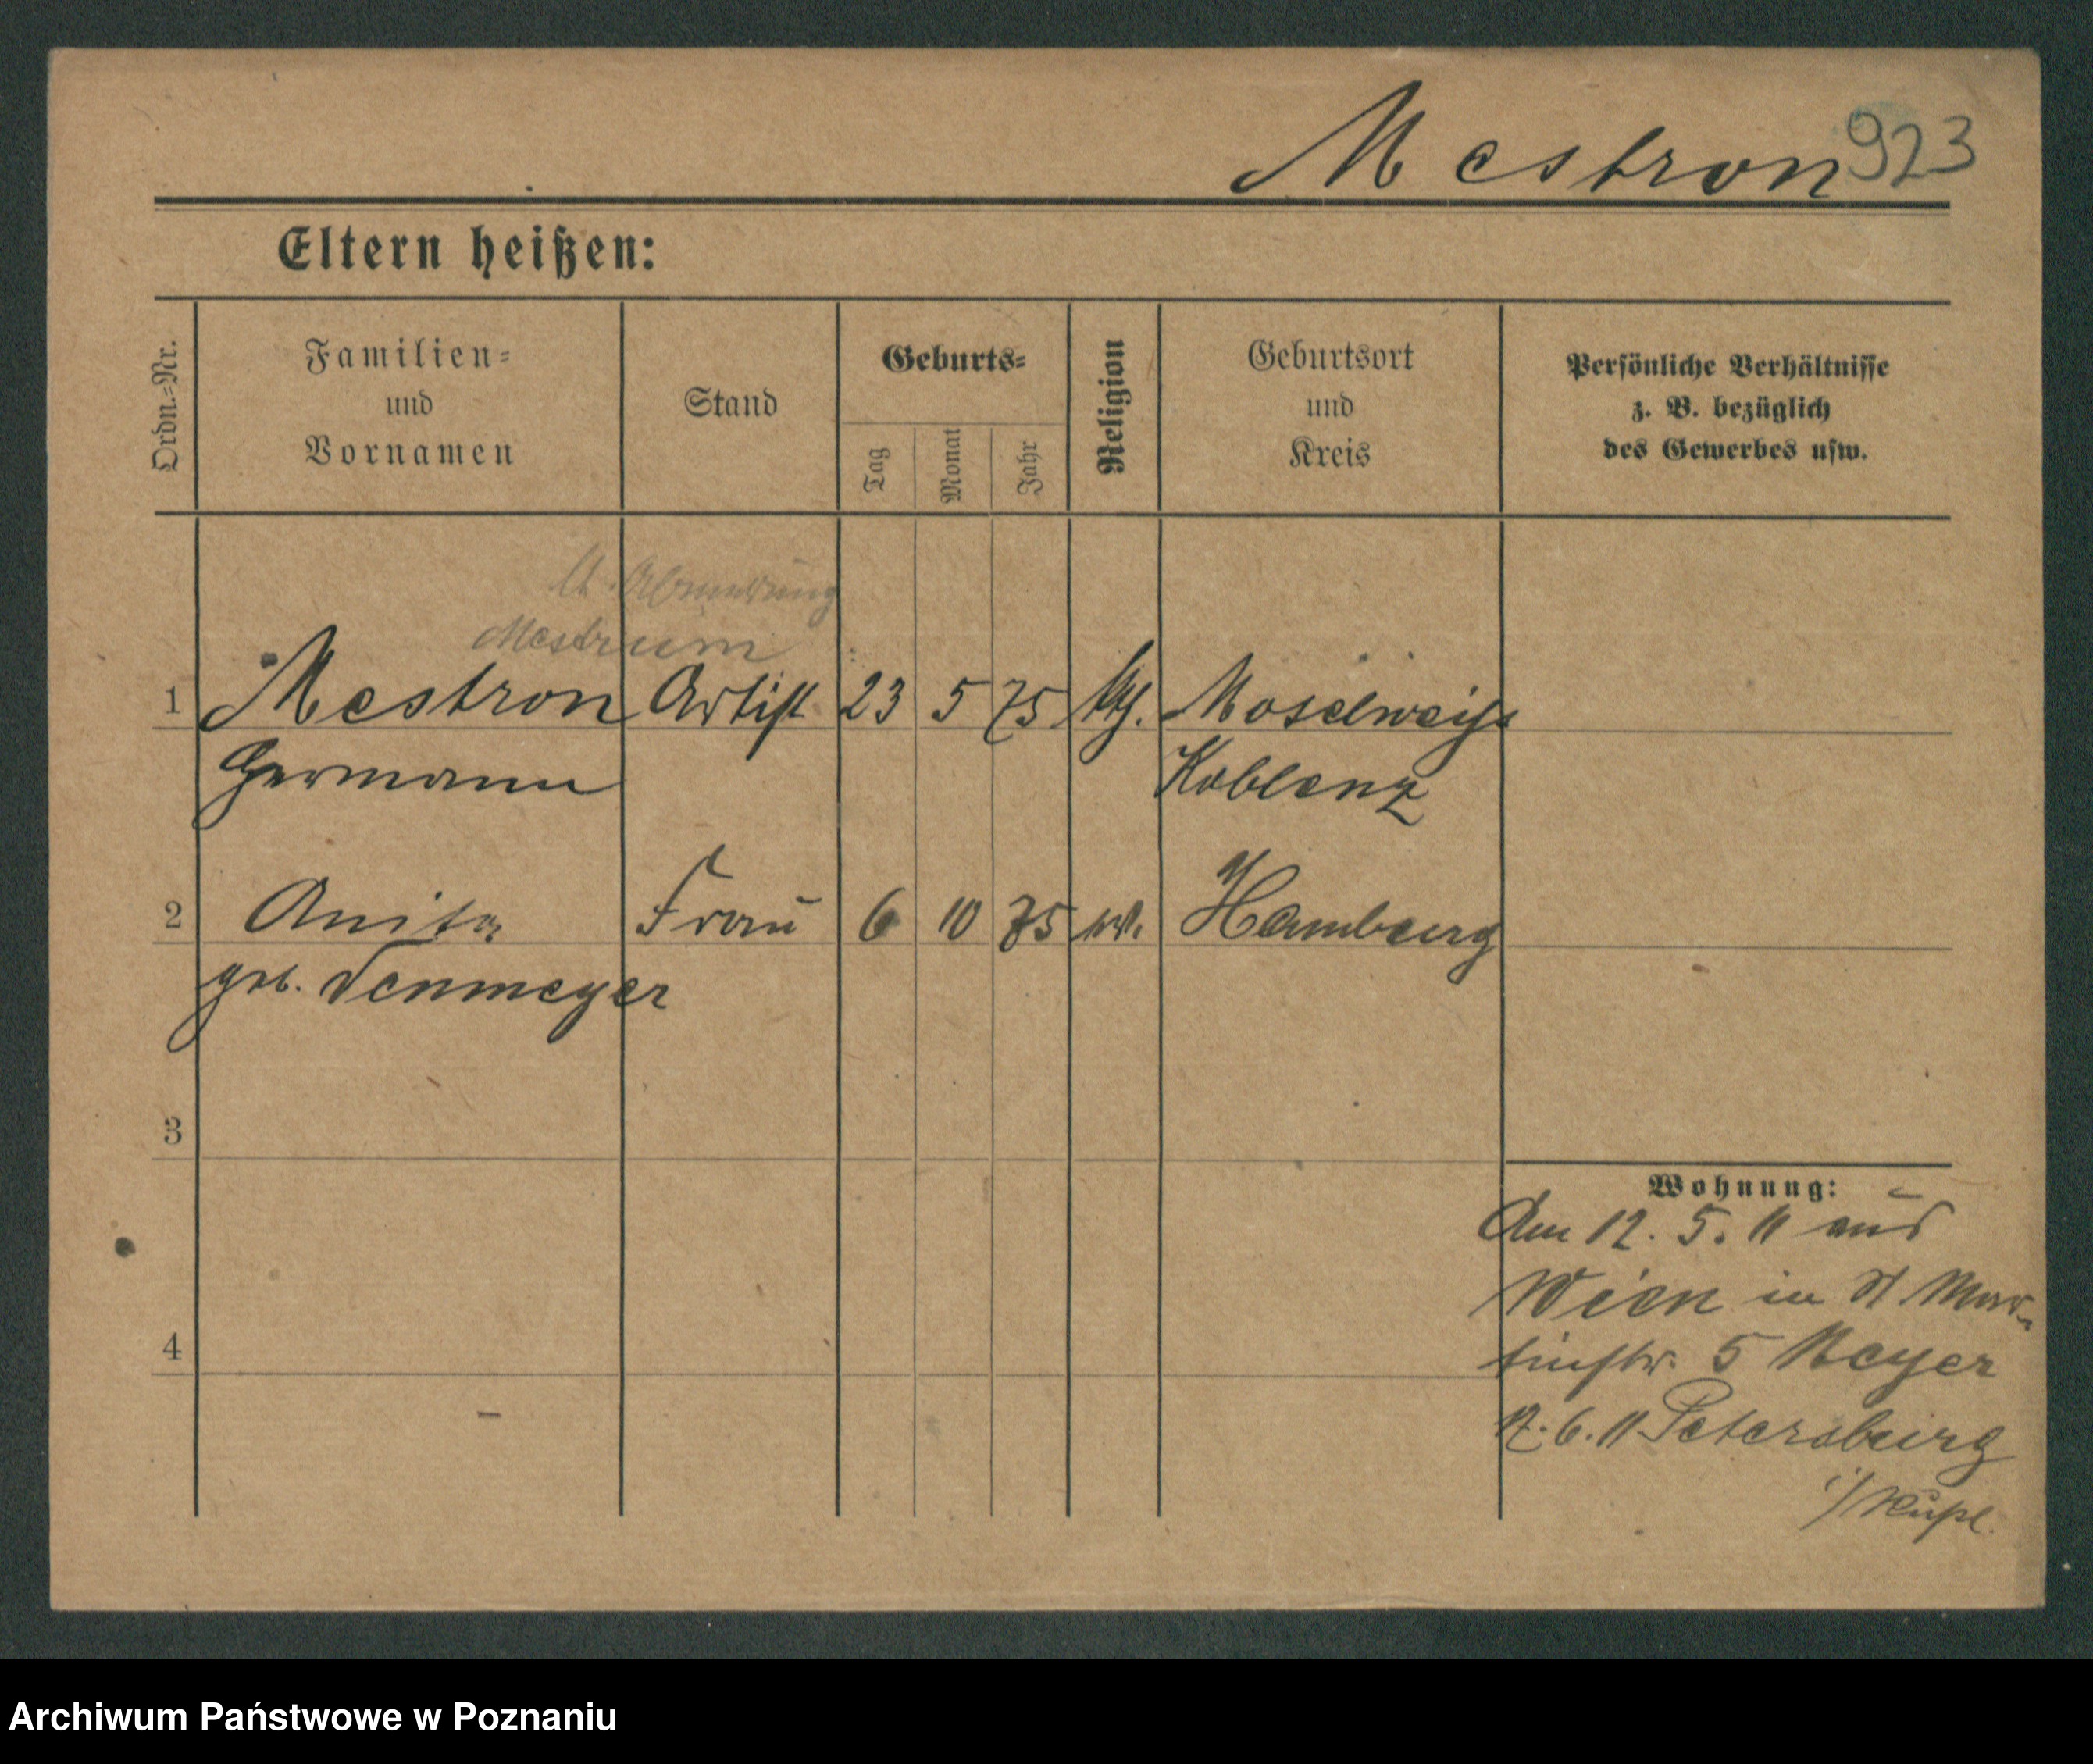 Mestron 923
Eltern heißen:
Ordn.=Nr.
Familien=
und
Vornamen
Stand
Geburts=
Tag
Monat
Jahr
Religion
Geburtsort
und
Kreis
Persönliche Verhältnisse
z. B. bezüglich
des Gewerbes usw.
lt. Abmeldung
Mestrum
1 Mestron Artist 23 5 75 kth. Moselweiss
Hermann Koblenz
2 Anita Frau 6 10 75 Hamburg
geb. Tenmeyer
3
Wohnung:
Am 12. 5. 11 aus
Wien in St Mar-
4
tinstr. 5 Beyer
12. 6. 11 Petersburg
Archiwum Państwowe w Poznaniu